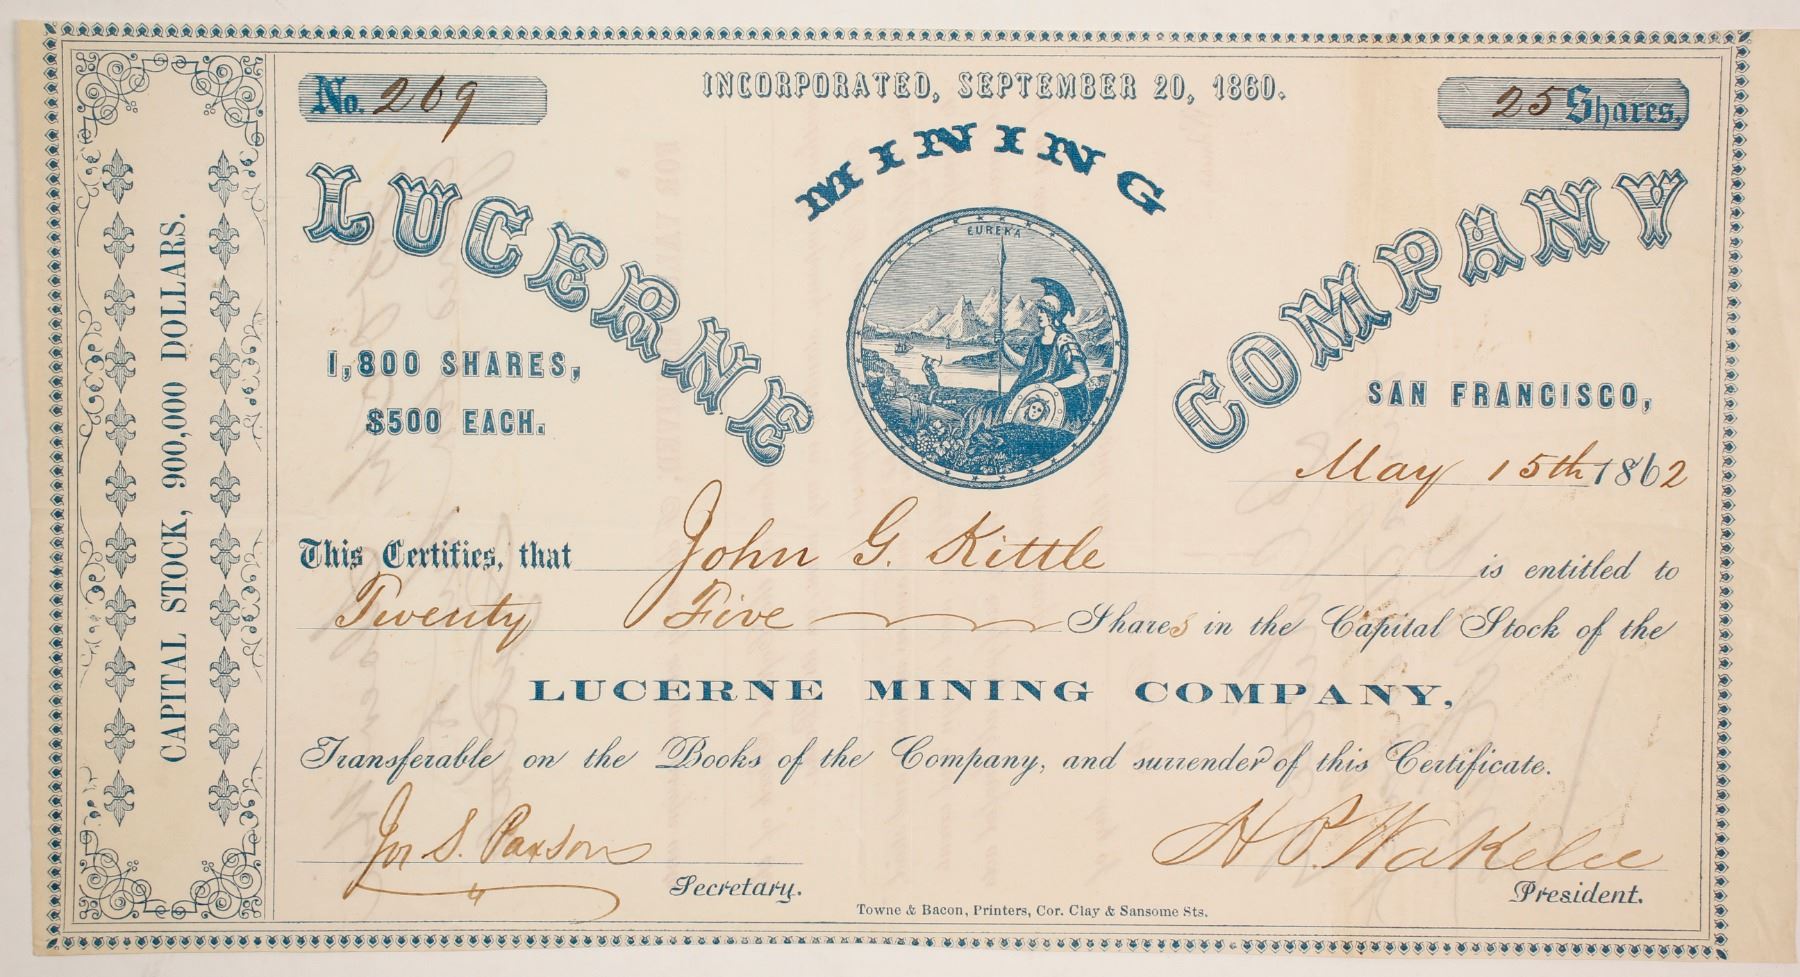 No. 269
INCORPORATED, SEPTEMBER 20, 1860.
25 Shares.
LUCERNE MINING COMPANY
EUREKA
1,800 SHARES,
$500 EACH.
SAN FRANCISCO,
May 15th 1862
This Certifies, that John G. Kittle is entitled to
Twenty Five Shares in the Capital Stock of the
LUCERNE MINING COMPANY,
Transferable on the Books of the Company, and surrender of this Certificate.
Jos S. Paxson
Secretary.
H P. Wakelee
President.
Towne & Bacon, Printers, Cor. Clay & Sansome Sts.
CAPITAL STOCK, 900,000 DOLLARS.